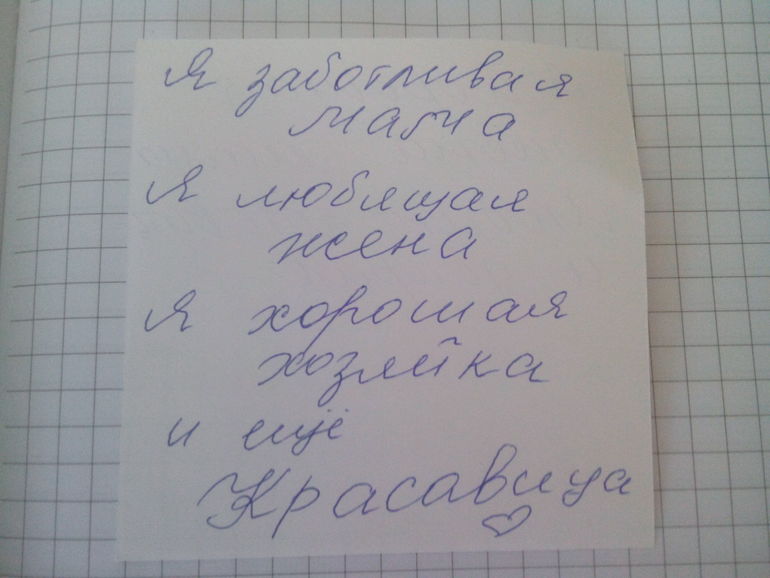 Я заботливая
мама
Я любящая
жена
Я хорошая
хозяйка
и ещё
Красавица